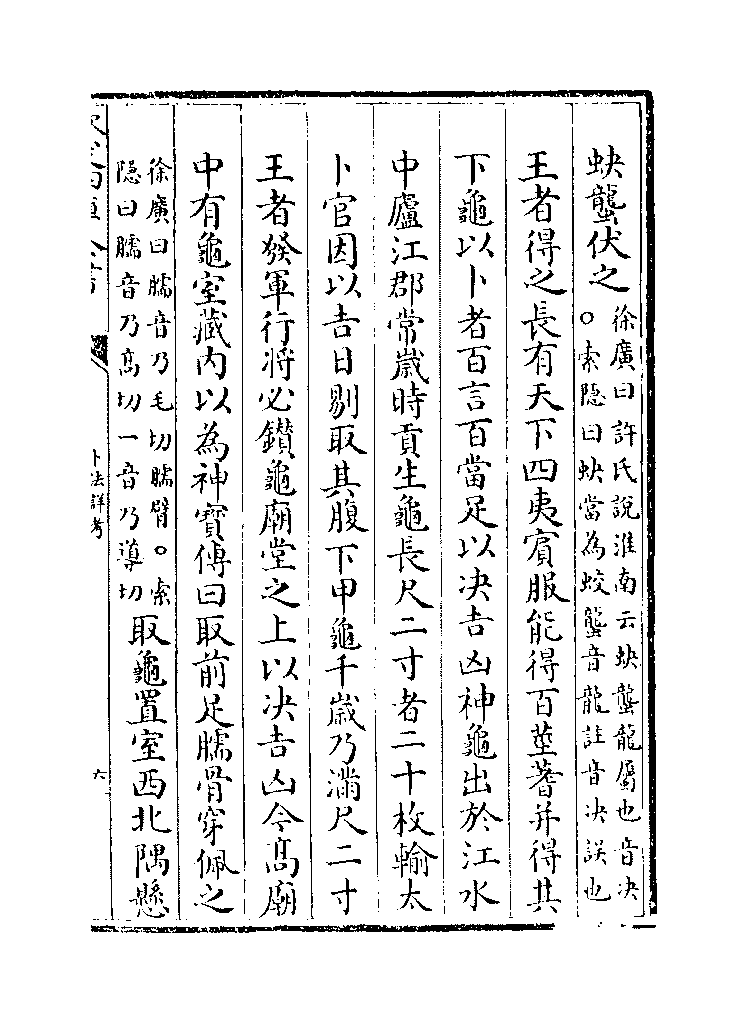 蚗蠪伏之徐廣曰許氏說淮南云蚗蠪龍屬也音决
○索隠曰蚗當為蛟蠪音龍註音决誤也
王者得之長有天下四夷賓服能得百莖蓍并得其
下龜以卜者百言百當足以决吉凶神龜出於江水
中廬江郡常歲時貢生龜長尺二寸者二十枚輸太
卜官因以吉日剔取其腹下甲龜千歲乃滿尺二寸
王者發軍行將必鑽龜廟堂之上以决吉凶今髙廟
中有龜室藏内以為神寳傳曰取前足臑骨穿佩之
徐廣曰臑音乃毛切臑臂○索
隠曰臑音乃髙切一音乃導切取龜置室西北隅懸
卜法詳考
六